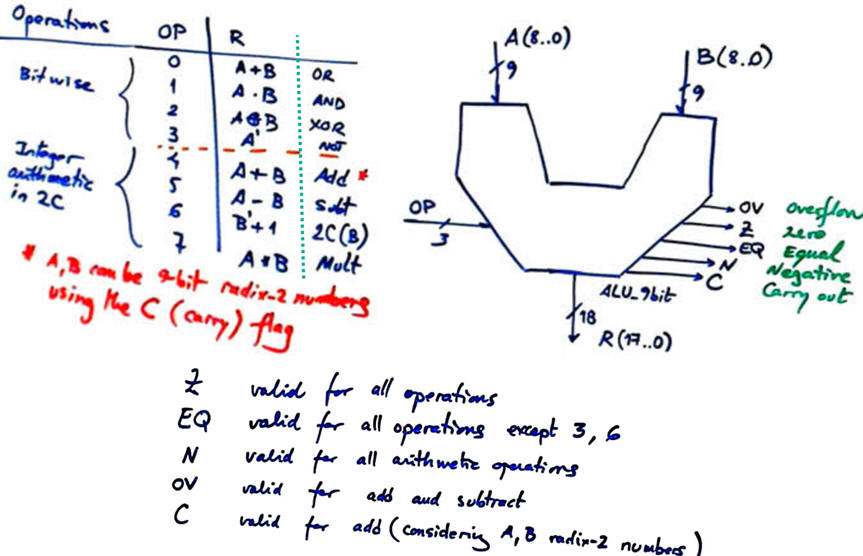 Operations OP R
Bitwise
0 A+B OR
1 A·B AND
2 A⊕B XOR
3 A' NOT
Integer arithmetic in 2C
4 A+B Add *
5 A-B subt
6 B'+1 2C(B)
7 A*B Mult
* A,B can be 9-bit radix-2 numbers
using the C (carry) flag
A(8..0)
9
B(8..0)
9
OP
3
OV overflow
Z zero
EQ Equal
N Negative
C Carry out
ALU_9bit
18
R(17..0)
Z valid for all operations
EQ valid for all operations except 3, 6
N valid for all arithmetic operations
OV valid for add and subtract
C valid for add (considering A, B radix-2 numbers)